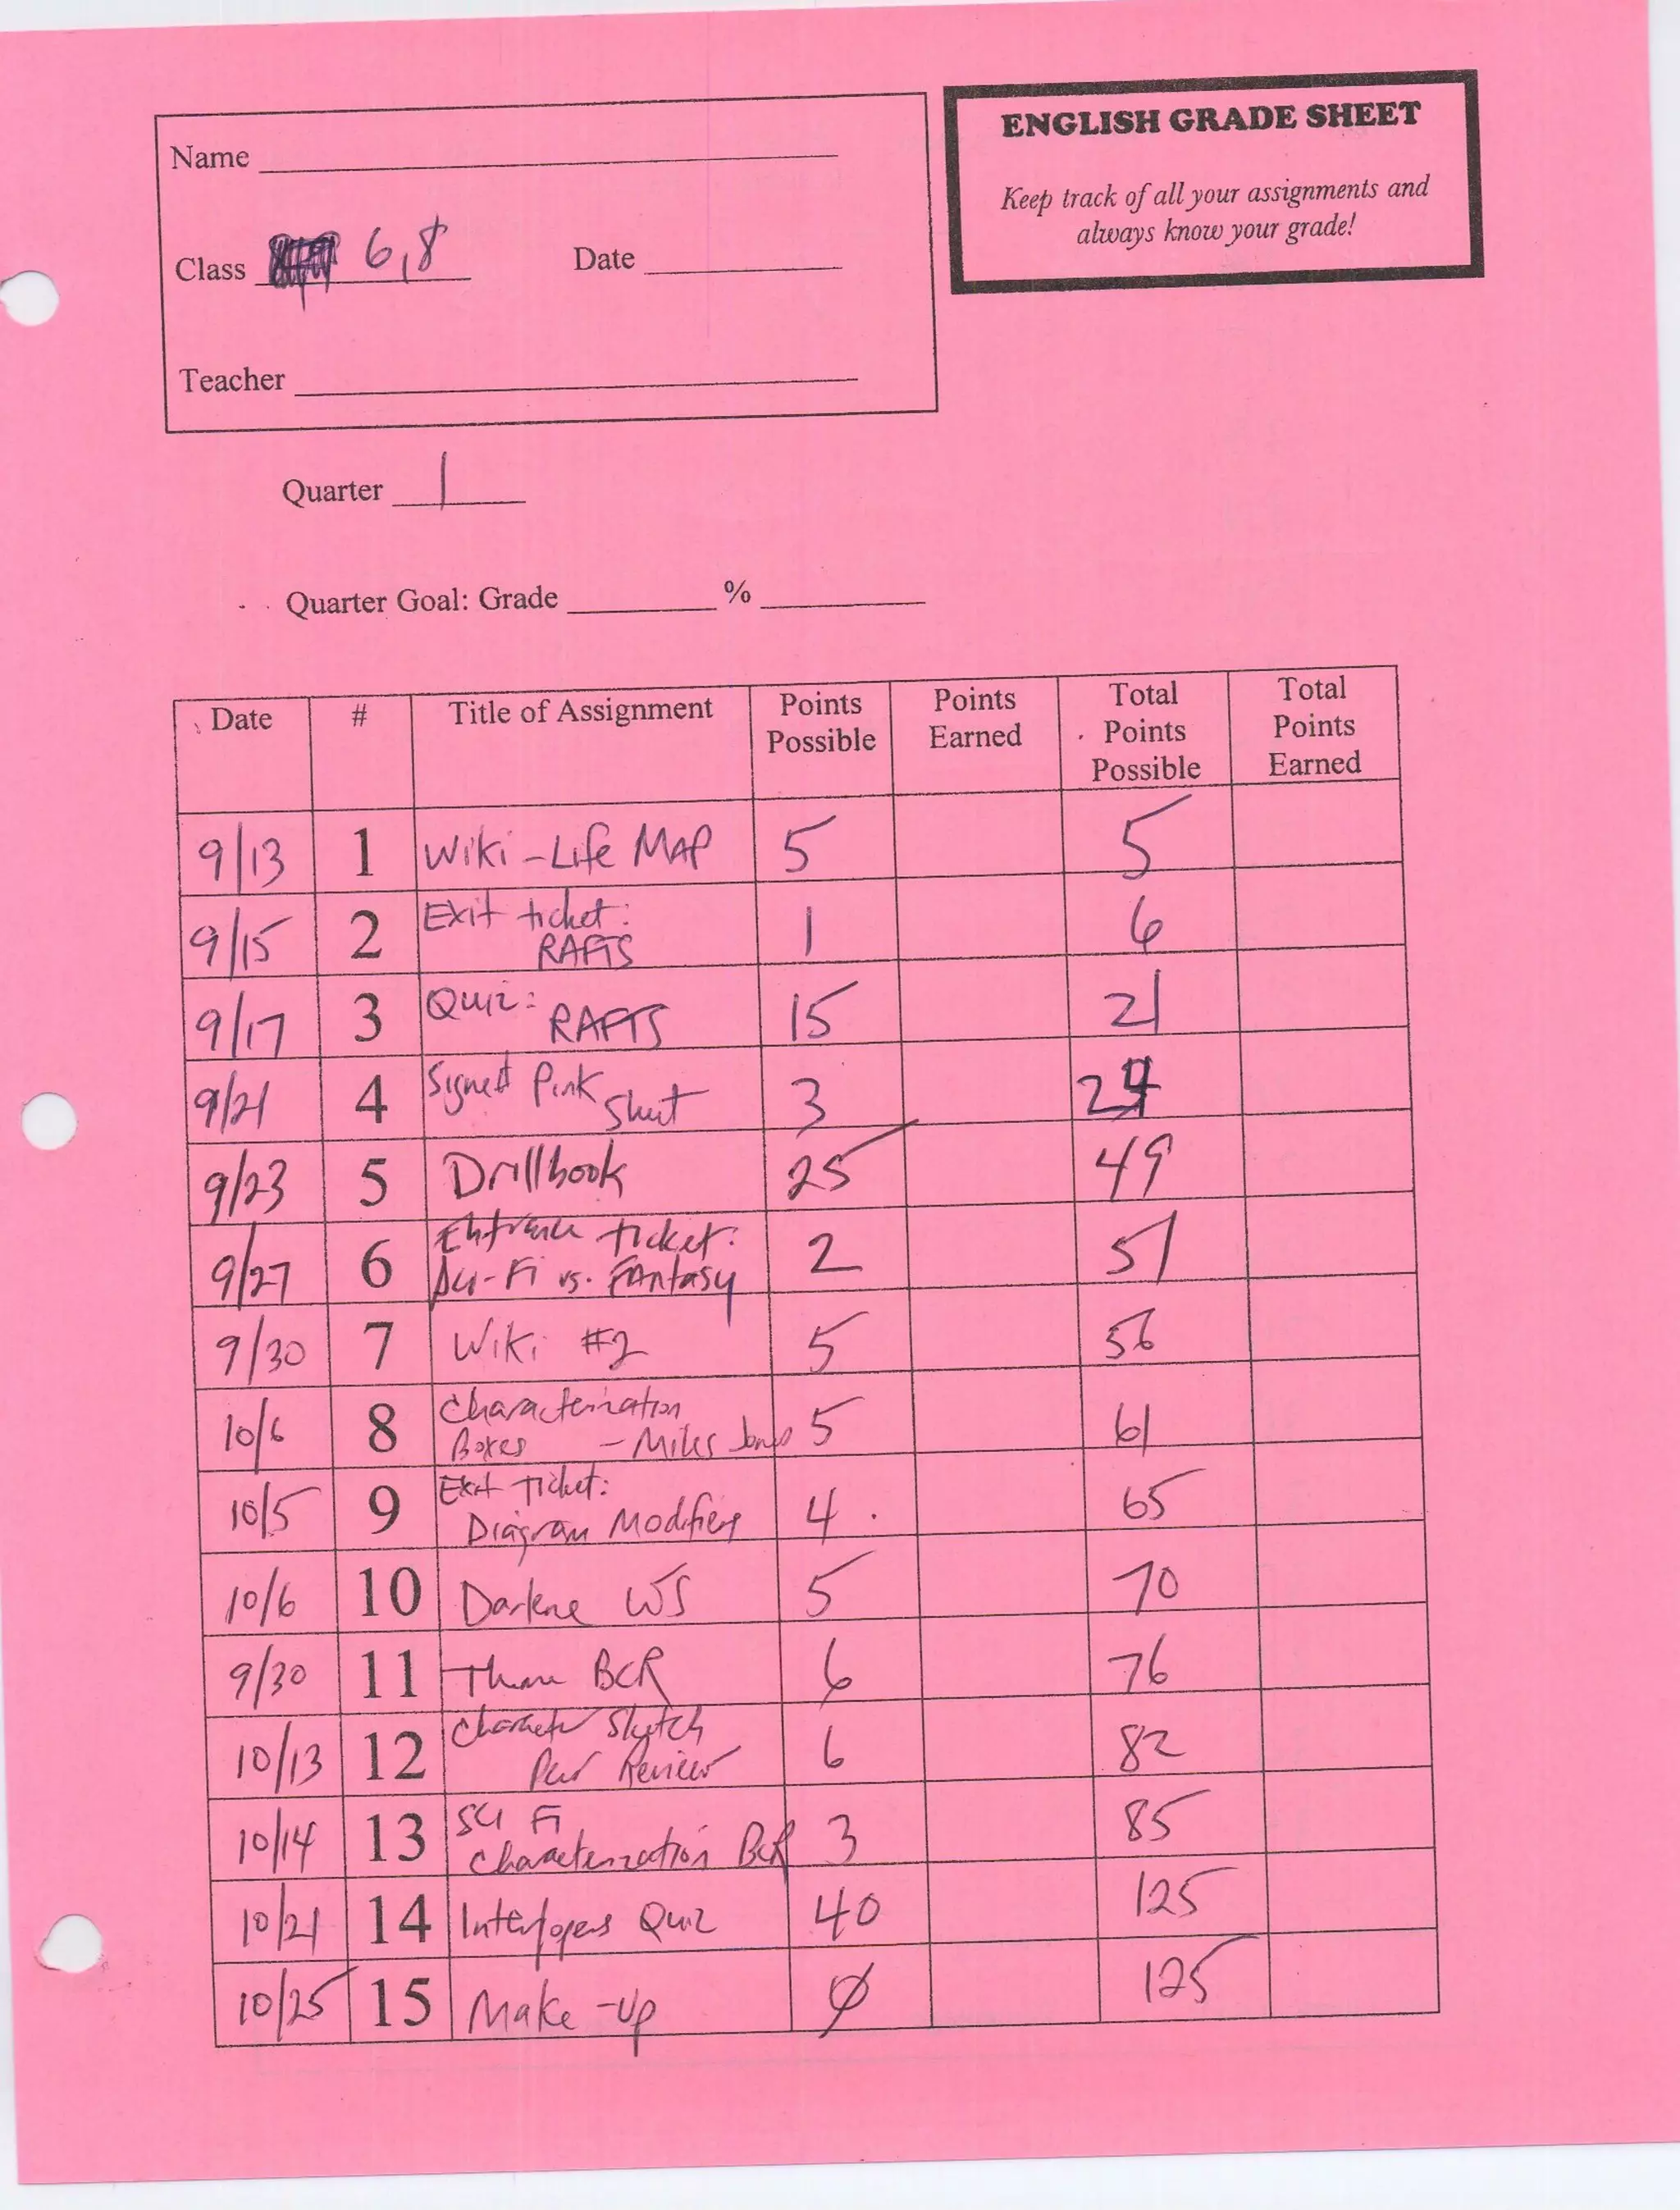 ENGLISH GRADE SHEET
Keep track of all your assignments and
always know your grade!
Name
Class 6,8 Date
Teacher
Quarter 1
Quarter Goal: Grade %
Date # Title of Assignment Points Possible Points Earned Total Points Possible Total Points Earned
9/13 1 Wiki-Life MAP 5 5
9/15 2 Exit ticket: RAFTS 1 6
9/17 3 Quiz: RAFTS 15 21
9/21 4 Signed Pink Sheet 3 24
9/23 5 Drillbook 25 49
9/27 6 Entrance ticket: Sci-Fi vs. FAntasy 2 51
9/30 7 Wiki #2 5 56
10/6 8 Characterization Boxes - Miles Jones 5 61
10/5 9 Exit Ticket: Diagram Modifiers 4 65
10/6 10 Darlene WS 5 70
9/30 11 Theme BCR 6 76
10/13 12 Character Sketch Peer Review 6 82
10/14 13 Sci Fi Characterization BCR 3 85
10/21 14 Interlopers Quiz 40 125
10/25 15 Make-up 0 125